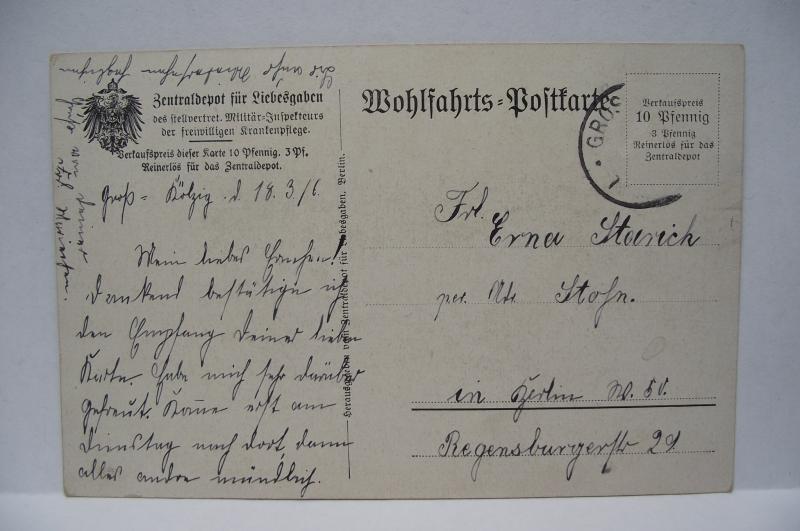 Zentraldepot für Liebesgaben
des stellvertret. Militär-Inspekteurs
der freiwilligen Krankenpflege.
Verkaufspreis dieser Karte 10 Pfennig. 3 Pf.
Reinerlös für das Zentraldepot.
Groß-Kölzig d. 18.3/6.
Mein liebes Ernchen!
Dankend bestätige ich
den Empfang Deiner lieben
Karte. Habe mich sehr darüber
gefreut. Komme erst am
Dienstag nach dort, dann
alles andre mündlich.
Herausgegeben vom Zentraldepot für Liebesgaben, Berlin.
Wohlfahrts-Postkarte
GROS
Verkaufspreis
10 Pfennig
3 Pfennig
Reinerlös für das
Zentraldepot
Frl.
Erna Starich
per. Adr. Stohn.
in Berlin W. 50.
Regensburgerstr 29